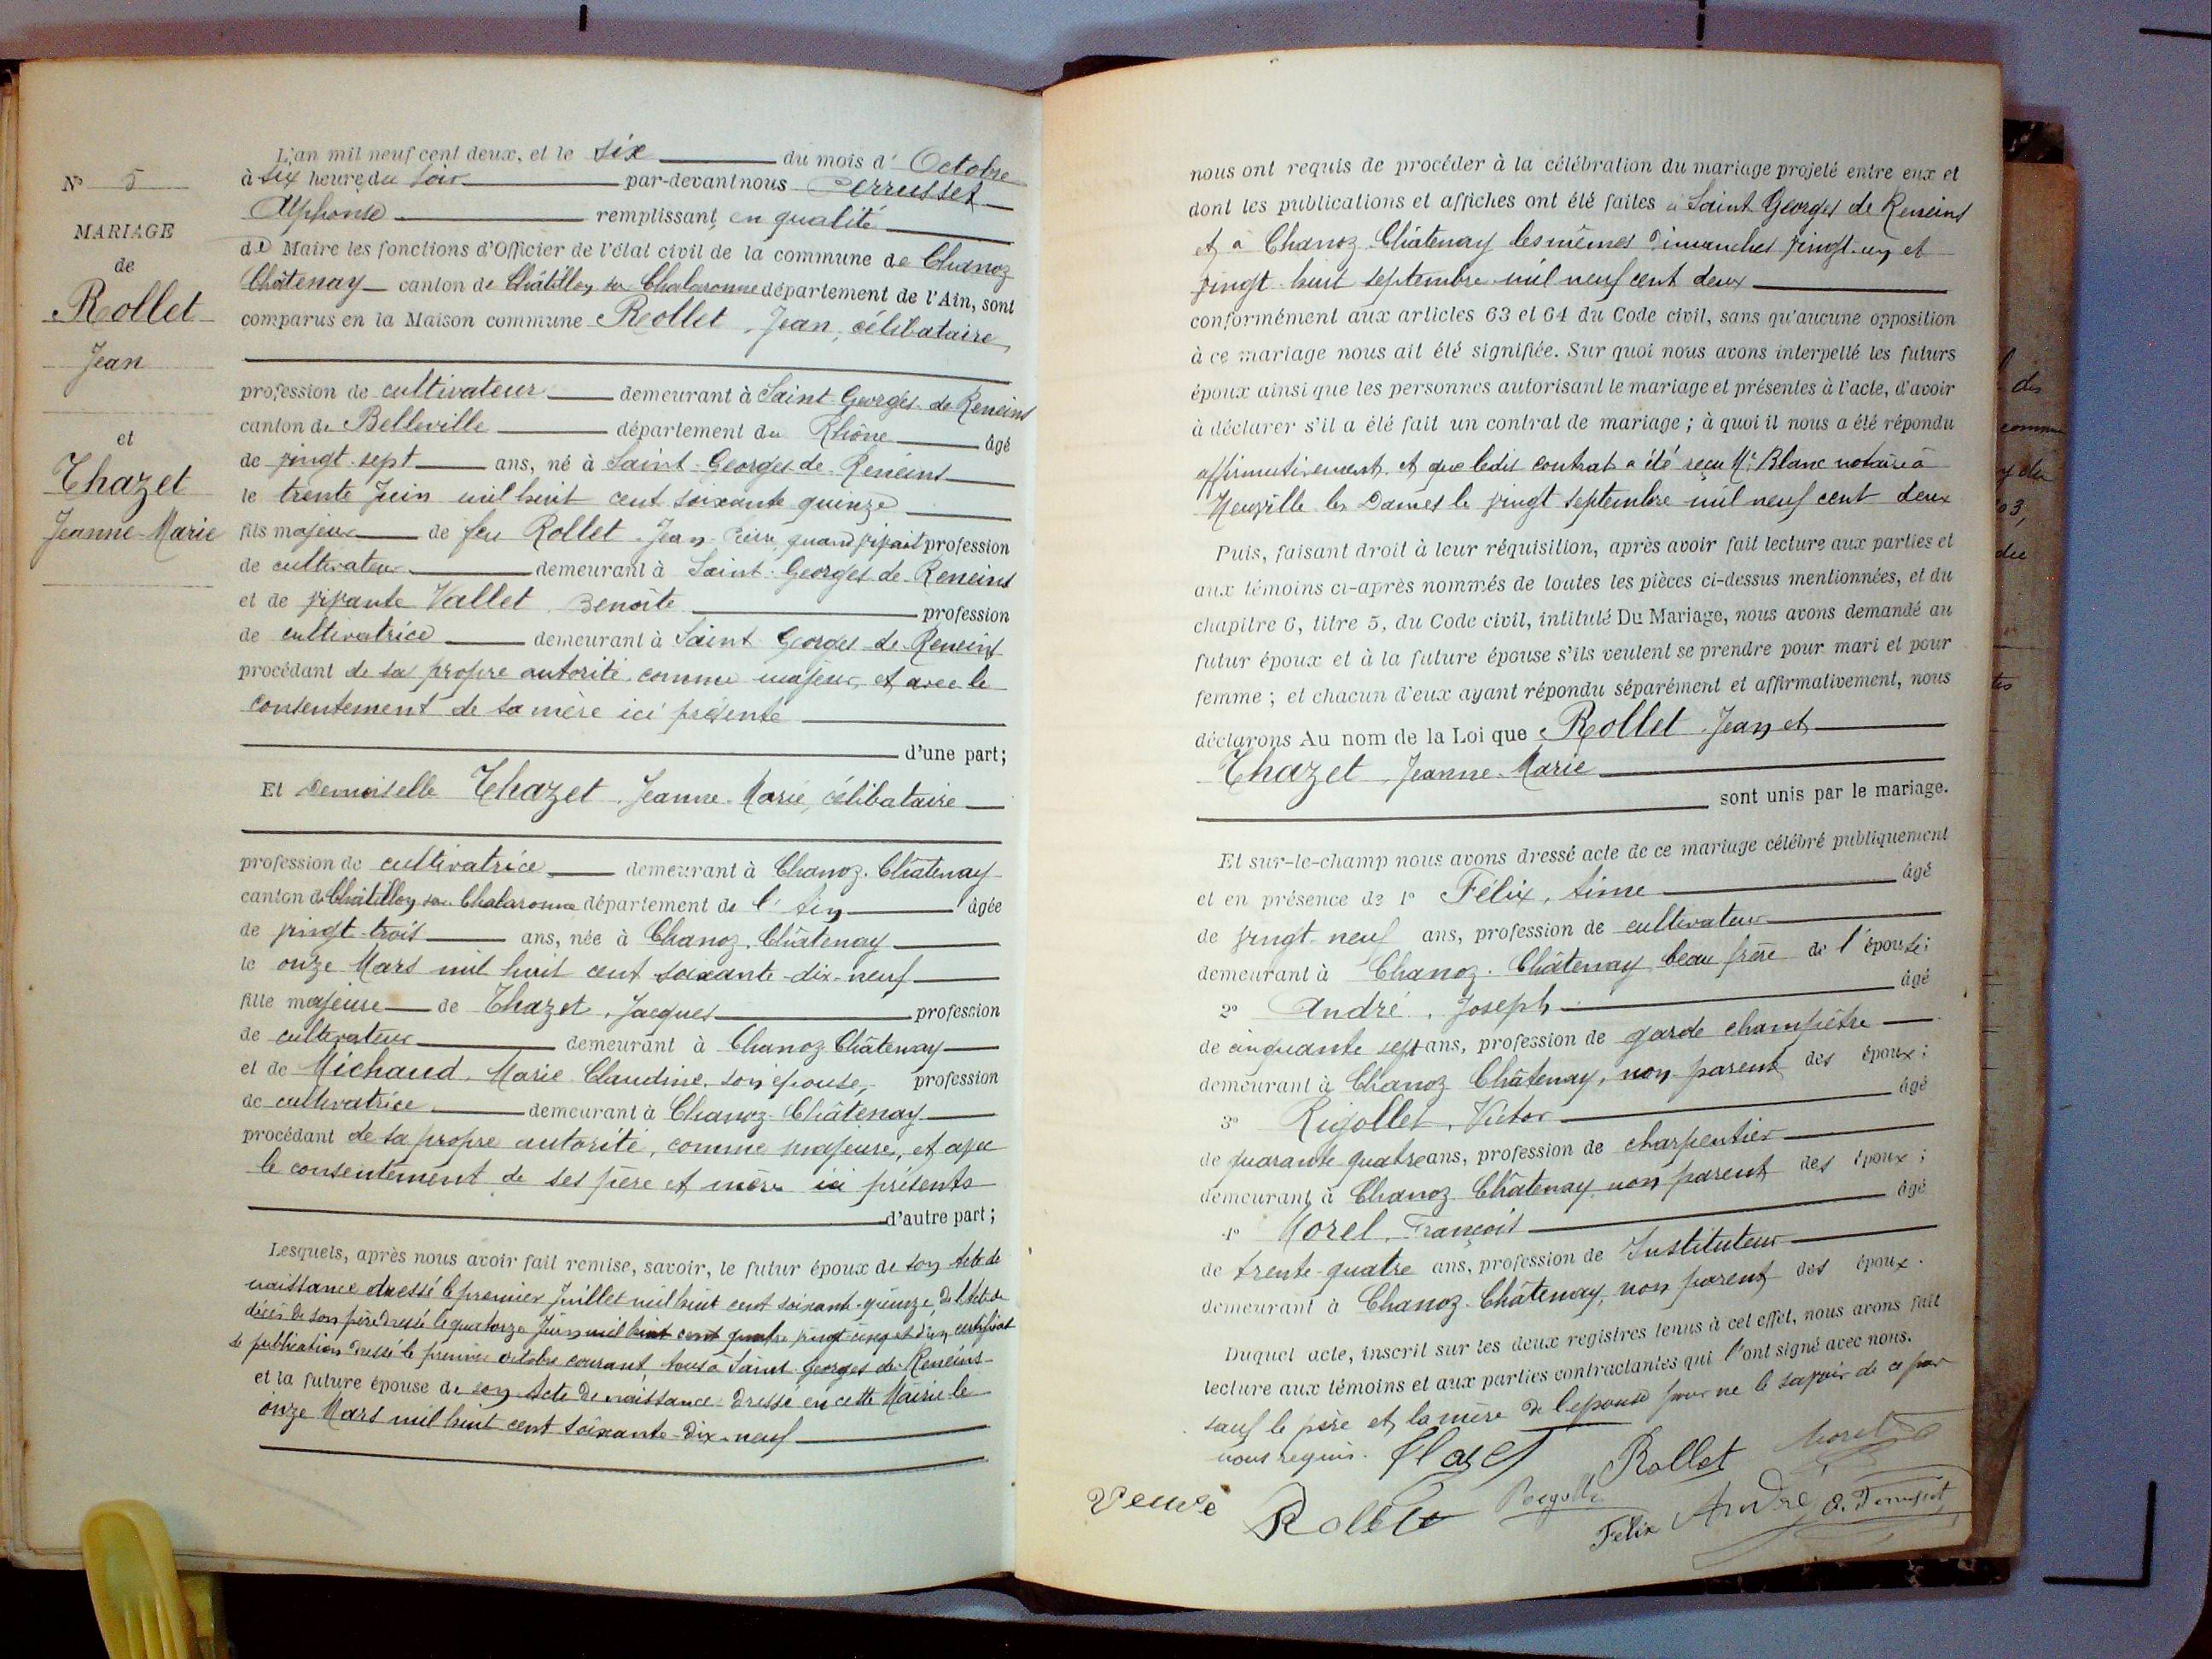 N° 5
MARIAGE
de
Rollet
Jean
et
Thazet
Jeanne-Marie
L'an mil neuf cent deux, et le six du mois d' Octobre
à six heures du soir par-devant nous Perrusset
Alphonse remplissant en qualité
de Maire les fonctions d'Officier de l'état civil de la commune de Chanoz
Châtenay canton de Châtillon sur Chalaronne département de l'Ain, sont
comparus en la Maison commune Rollet, Jean, célibataire
profession de cultivateur demeurant à Saint Georges de Reneins
canton de Belleville département du Rhône âgé
de vingt-sept ans, né à Saint-Georges de Reneins
le trente Juin mil huit cent soixante quinze
fils majeur de feu Rollet Jean-Pierre, quand vivait profession
de cultivateur demeurant à Saint-Georges de Reneins
et de vivante Vallet, Benoîte profession
de cultivatrice demeurant à Saint Georges de Reneins
procédant de sa propre autorité, comme majeur, et avec le
consentement de sa mère ici présente
d'une part;
Et Demoiselle Thazet, Jeanne-Marie, célibataire
profession de cultivatrice demeurant à Chanoz-Châtenay
canton de Châtillon sur Chalaronne département de l'Ain âgée
de vingt-trois ans, née à Chanoz-Châtenay
le onze Mars mil huit cent soixante-dix-neuf
fille majeure de Thazet, Jacques profession
de cultivateur demeurant à Chanoz-Châtenay
et de Michaud, Marie Claudine, son épouse, profession
de cultivatrice demeurant à Chanoz-Châtenay
procédant de sa propre autorité, comme majeure, et avec
le consentement de ses père et mère ici présents
d'autre part;
Lesquels, après nous avoir fait remise, savoir, le futur époux de son Acte de
naissance dressé le premier Juillet mil huit cent soixante-quinze, de l'Acte de
décès de son père dressé le quatorze Juin mil huit cent quatre vingt-cinq et d'un certificat
de publication dressé le premier octobre courant, tous à Saint-Georges de Reneins
et la future épouse de son Acte de naissance dressé en cette Mairie le
onze Mars mil huit cent soixante-dix-neuf
nous ont requis de procéder à la célébration du mariage projeté entre eux et
dont les publications et affiches ont été faites à Saint Georges de Reneins
et à Chanoz-Châtenay les mêmes Dimanches vingt-un et
vingt-huit septembre mil neuf cent deux
conformément aux articles 63 et 64 du Code civil, sans qu'aucune opposition
à ce mariage nous ait été signifiée. Sur quoi nous avons interpellé les futurs
époux ainsi que les personnes autorisant le mariage et présentes à l'acte, d'avoir
à déclarer s'il a été fait un contrat de mariage; à quoi il nous a été répondu
affirmativement, et que ledit contrat a été reçu Me Blanc notaire à
Neuville les Dames le vingt septembre mil neuf cent deux
Puis, faisant droit à leur réquisition, après avoir fait lecture aux parties et
aux témoins ci-après nommés de toutes les pièces ci-dessus mentionnées, et du
chapitre 6, titre 5, du Code civil, intitulé Du Mariage, nous avons demandé au
futur époux et à la future épouse s'ils veulent se prendre pour mari et pour
femme; et chacun d'eux ayant répondu séparément et affirmativement, nous
déclarons Au nom de la Loi que Rollet Jean et
Thazet, Jeanne-Marie
sont unis par le mariage.
Et sur-le-champ nous avons dressé acte de ce mariage célébré publiquement
et en présence de 1° Félix, Aimé âgé
de vingt neuf ans, profession de cultivateur
demeurant à Chanoz-Châtenay beau frère de l'épouse;
2° André, Joseph âgé
de cinquante sept ans, profession de garde champêtre
demeurant à Chanoz Châtenay, non parent des époux;
3° Rigollet, Victor âgé
de quarante quatre ans, profession de charpentier
demeurant à Chanoz Châtenay non parent des époux;
4° Morel, François âgé
de trente-quatre ans, profession de Instituteur
demeurant à Chanoz-Châtenay, non parent des époux.
Duquel acte, inscrit sur les deux registres tenus à cet effet, nous avons fait
lecture aux témoins et aux parties contractantes qui l'ont signé avec nous.
sauf le père et la mère de l'épouse pour ne le savoir de ce par
nous requis. Thazet Rollet Morel
Veuve Rollet Rigollet Félix André A. Perrusset
des
commu
du